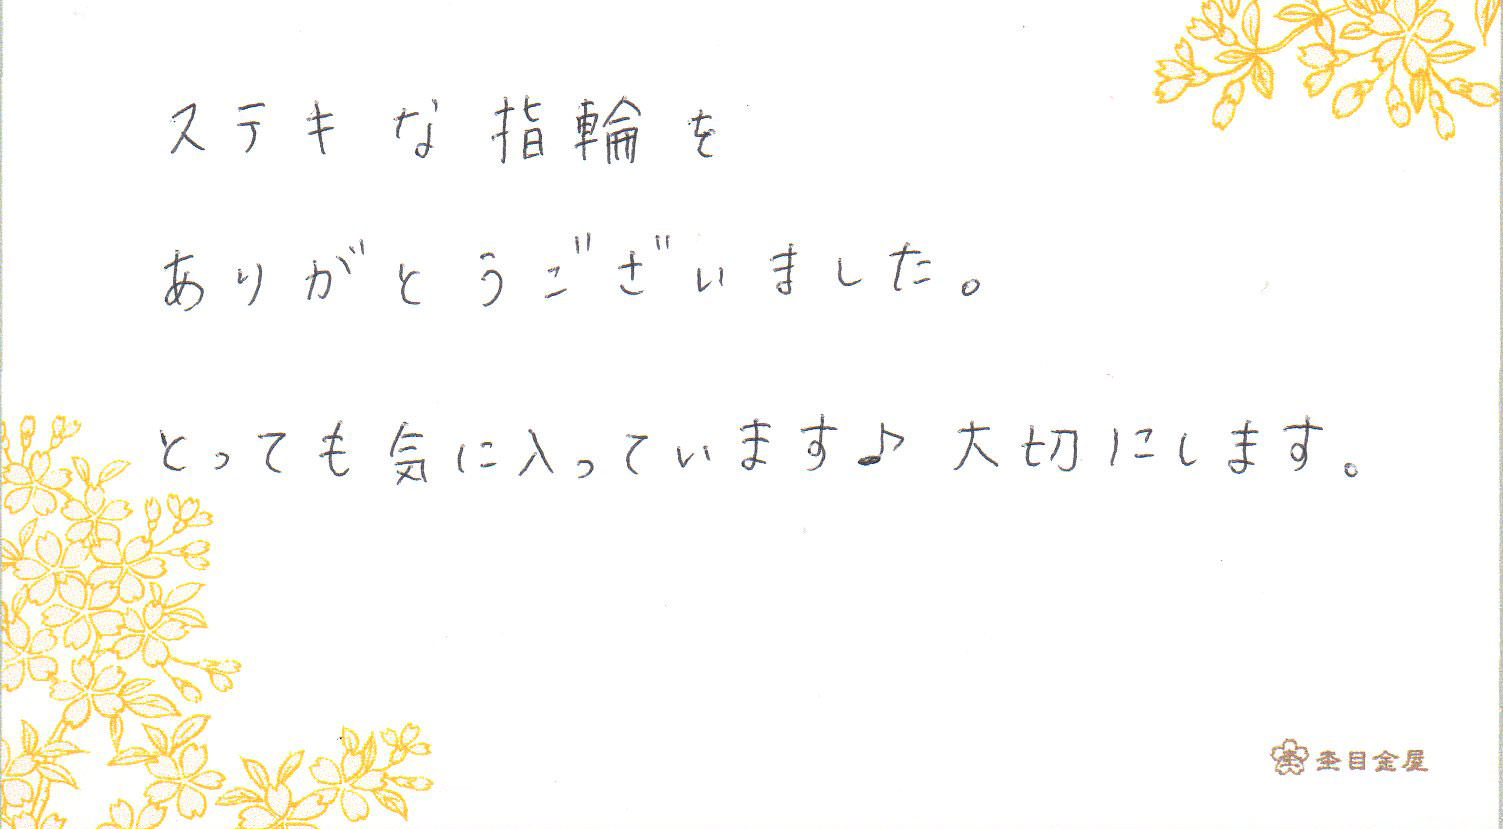 ステキな指輪を
ありがとうございました。
とっても気に入っています♪ 大切にします。
杢目金屋